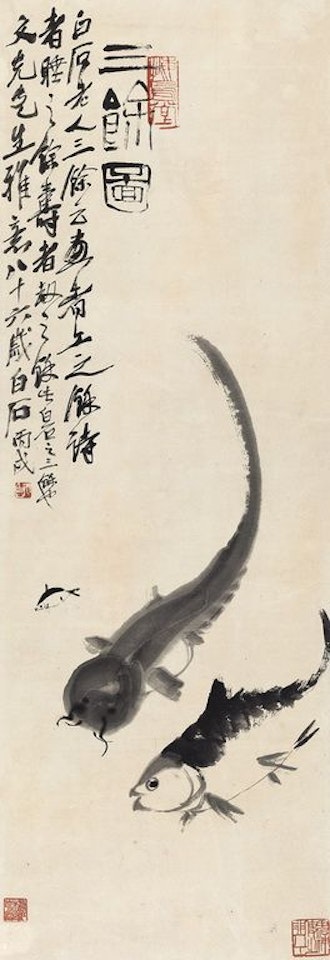 三餘圖
白石老人三餘云畫者工之餘詩
者睡之餘壽者劫之餘此白石之三餘也
文克先生雅意八十六歲白石丙戌